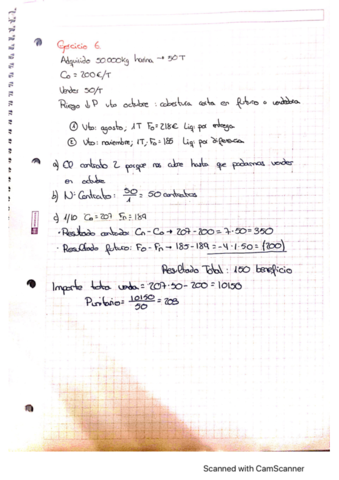 Ejercicio 6
Adquirido 50000kg harina → 50T
C0 = 200€/T
Vender 50/T
Riesgo ↓P vto octubre : cobertura corta en futuro o vendedora
① Vto: agosto, 1T F0=218€ Liq: por entrega
② Vto: noviembre, 1T, F0=185 Liq: por diferencia
a) contrato 2 porque nos cubre hasta que podamos vender
en octubre
b) Nº Contratos: 50/1 = 50 contratos
c) 1/10 Cn=207 Fn=189
· Resultado contado: Cn-C0 → 207-200=7·50=350
· Resultado futuro: F0-Fn → 185-189=-4·1·50=(200)
Resultado Total: 150 beneficio
Importe total venta = 207·50-200=10150
P unitario= 10150/50 = 203
Scanned with CamScanner